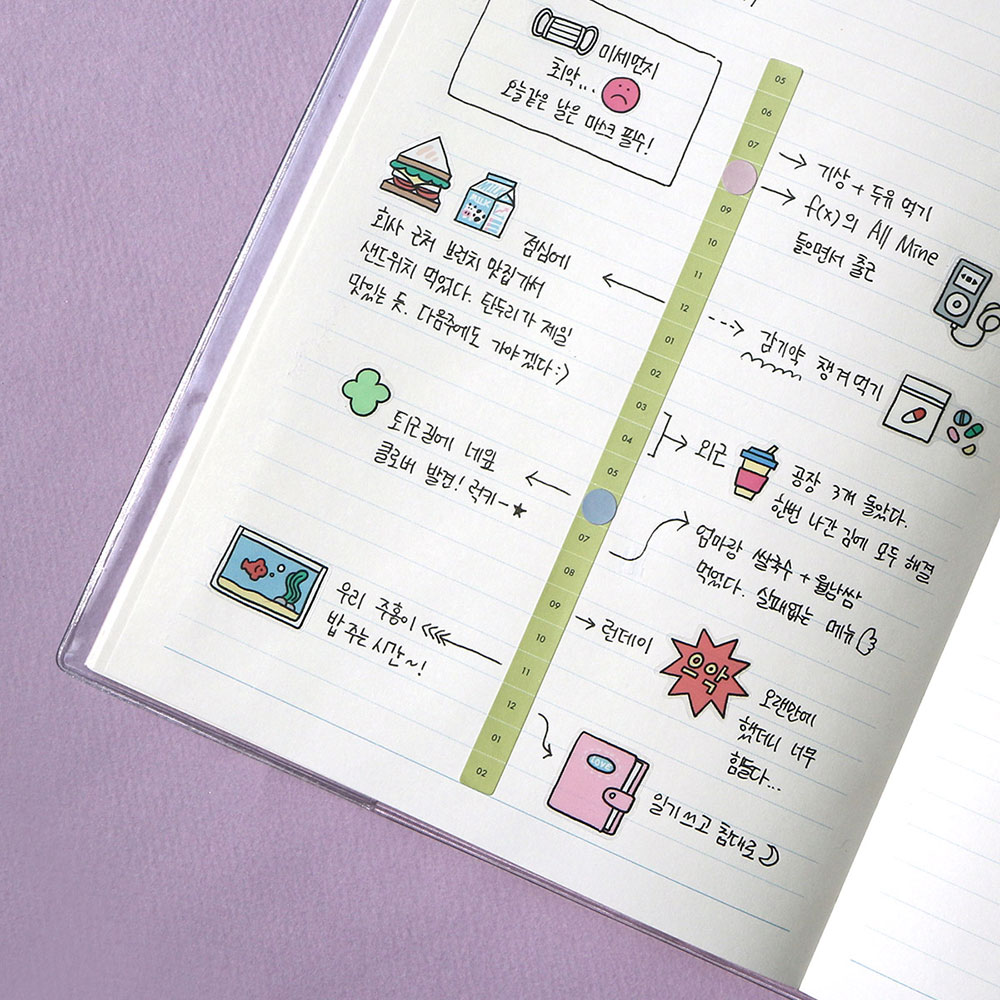 미세먼지
최악...
오늘같은 날은 마스크 필수!
MILK
MILK
점심에
회사 근처 브런치 맛집가서
샌드위치 먹었다. 탄두리가 제일
맛있는 듯. 다음주에도 가야겠다:)
퇴근길에 네잎
클로버 발견! 럭키-★
우리 주홍이
밥 주는 시간~!
05
06
07
09
10
11
12
01
02
03
04
05
07
08
09
10
11
12
01
02
기상 + 두유 먹기
f(x)의 All Mine
들으면서 출근
감기약 챙겨먹기
외근
공장 3개 돌았다.
한번 나간 김에 모두 해결
엄마랑 쌀국수 + 월남쌈
먹었다. 실패없는 메뉴
런데이
으악
오랜만에
했더니 너무
힘들다...
LOVE
일기쓰고 침대로